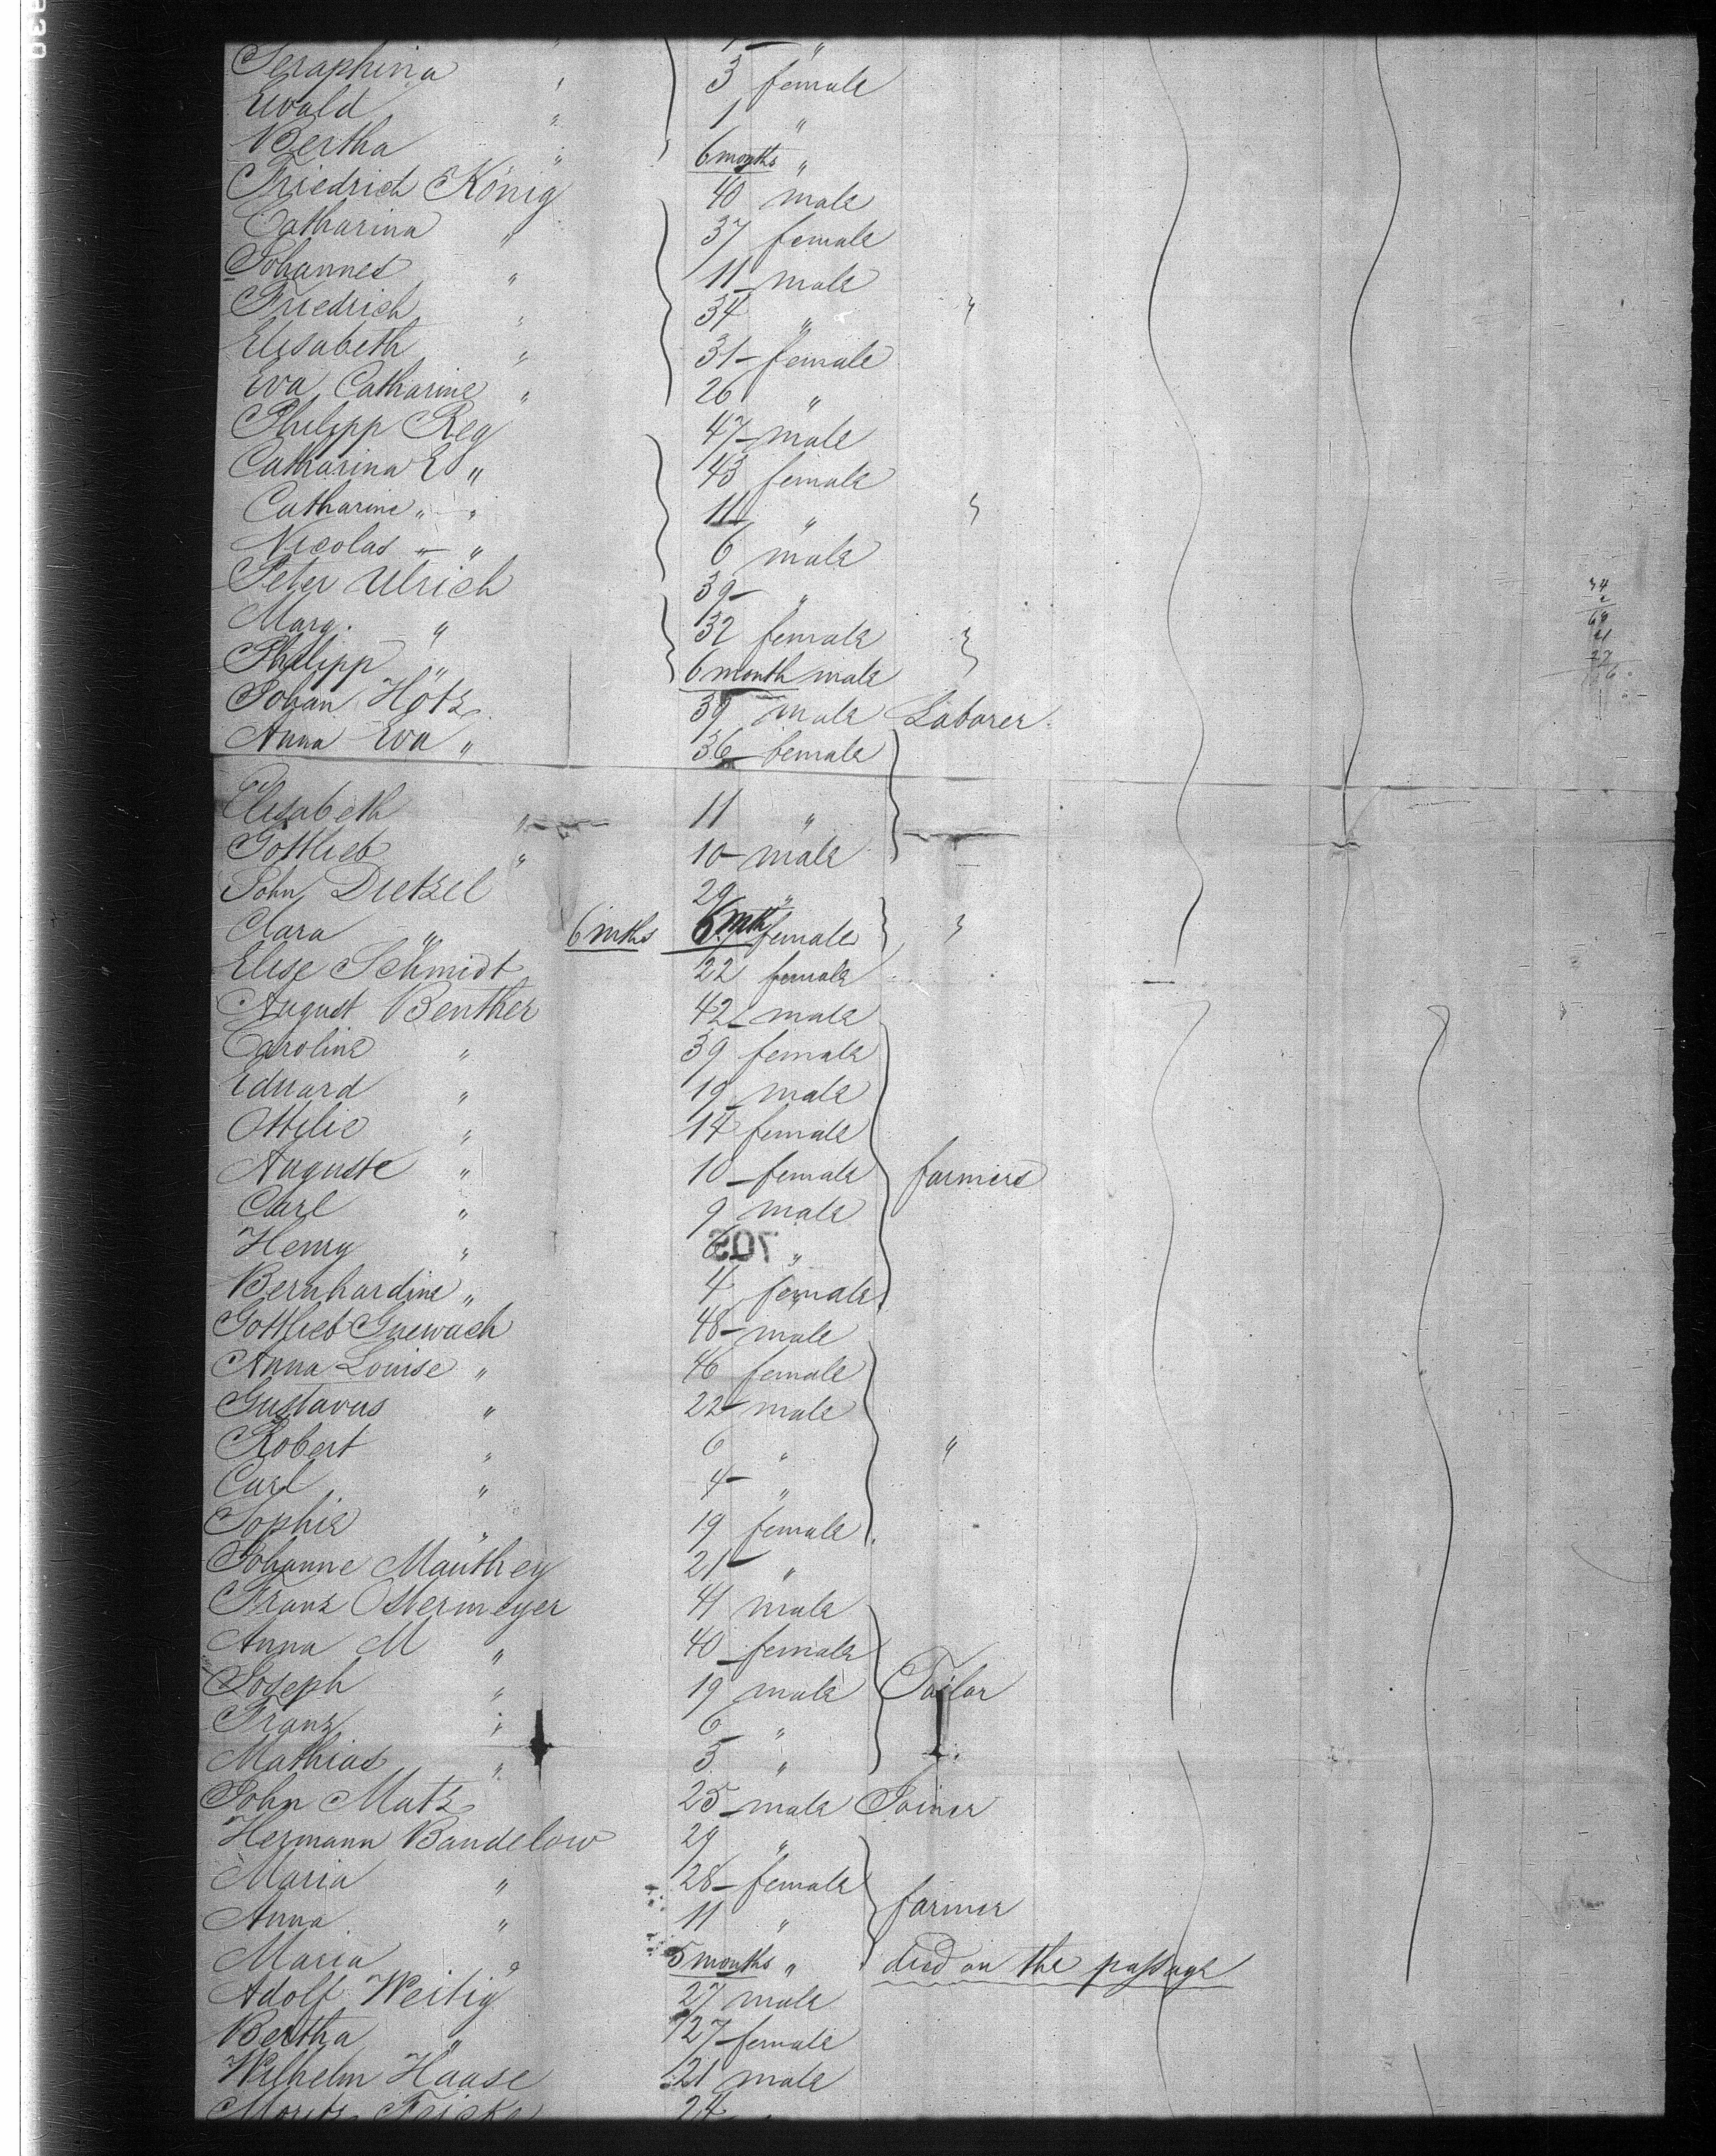 Seraphina " 3 female
Ewald " 1 "
Bertha " 6 months "
Friedrich König 40 male
Catharina " 37 female
Johannes " 11 male
Friedrich " 34 " "
Elisabeth " 31 female
Eva Catharine " 26 "
Philipp Reg 47 male
Catharina E " 43 female
Catharine " " 11 " "
Nicolas " " 6 male
Peter Ulrich 39 "
Marg. " 32 female "
Philipp " 6 month male
Johan Hotz 39 male Laborer
Anna Eva " 36 female
Elisabeth " 11 "
Gottlieb " 10 male
John Dietzel 29 "
Clara " 6 mths 6 mth female "
Elise Schmidt 22 female
August Benther 42 male
Caroline " 39 female
Eduard " 19 male
Ottilie " 14 female
Auguste " 10 female farmers
Carl " 9 male
Henry " 6 "
Bernhardine " 4 female
Gottlieb Gnewach 48 male
Anna Louise " 46 female
Gustavus " 22 male
Robert " 6 " "
Carl " 4 "
Sophie " 19 female
Johanne Mauthey 21 "
Franz Ostermeyer 41 male
Anna M " 40 female
Joseph " 19 male Tailor
Franz " 6 "
Mathias " 5 "
John Matz 25 male Joiner
Hermann Bandelow 29 "
Maria " 28 female
Anna " 11 " farmer
Maria " 5 months " died on the passage
Adolf Weitig 27 male
Bertha " 27 female
Wilhelm Haase 21 male
Moritz Friske 24